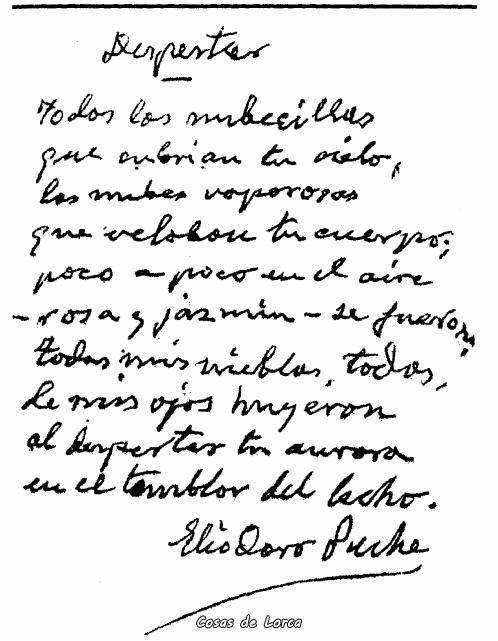 Despertar
Todas las nubecillas
que cubrían tu cielo,
las nubes vaporosas
que velaban tu cuerpo;
poco a poco en el aire
- rosa y jazmín - se fueron;
todas mis nieblas, todas,
de mis ojos huyeron
al despertar tu aurora
en el temblor del lecho.
Eliodoro Puche
Cosas de Lorca